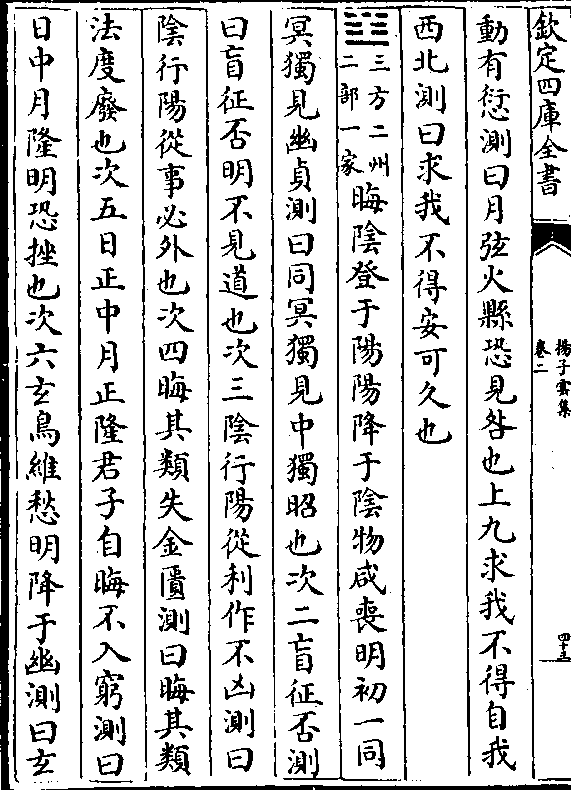 欽定四庫全書
揚子雲集
卷二
四十三
動有愆測曰月弦火縣恐見咎也上九求我不得自我
西北測曰求我不得安可久也
三方二州
二部一家
晦陰登于陽陽降于陰物咸喪明初一同
冥獨見幽貞測曰同冥獨見中獨昭也次二盲征否測
曰盲征否明不見道也次三陰行陽從利作不凶測曰
陰行陽從事必外也次四晦其類失金匱測曰晦其類
法度廢也次五日正中月正隆君子自晦不入窮測曰
日中月隆明恐挫也次六玄鳥維愁明降于幽測曰玄